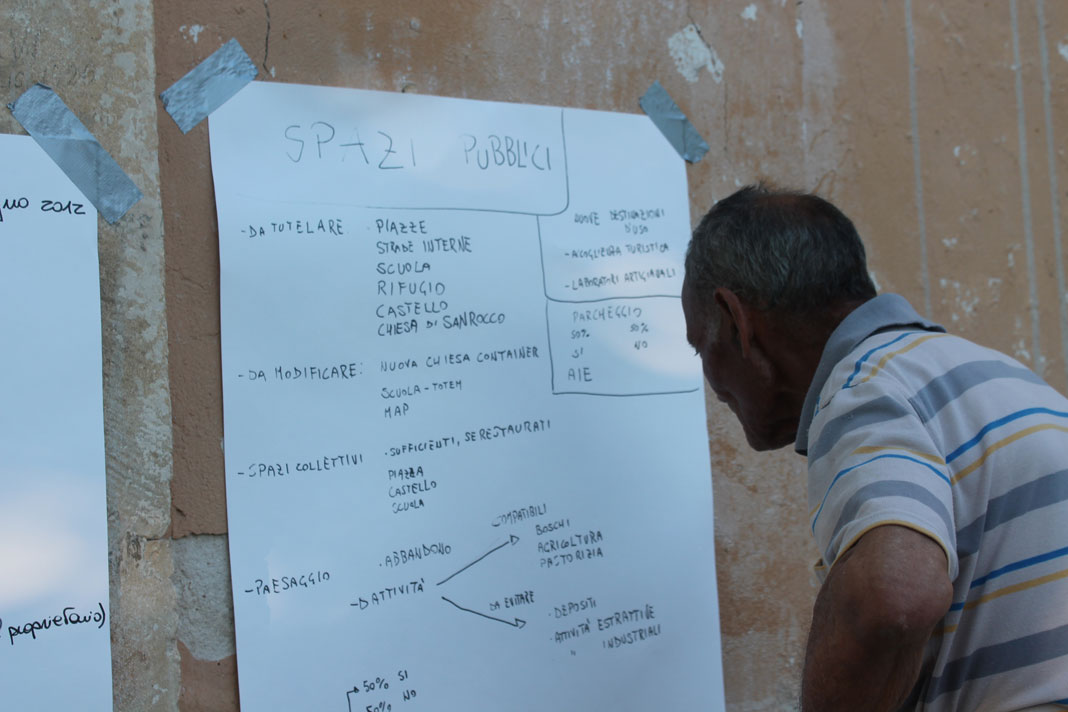 gno 2012
proprietario)
SPAZI PUBBLICI
- DA TUTELARE
· PIAZZE
STRADE INTERNE
SCUOLA
RIFUGIO
CASTELLO
CHIESA DI SAN ROCCO
NUOVE DESTINAZIONI
D'USO
- ACCOGLIENZA TURISTICA
- LABORATORI ARTIGIANALI
PARCHEGGIO
50% 50%
SI NO
AIE
- DA MODIFICARE:
NUOVA CHIESA CONTAINER
SCUOLA - TOTEM
MAP
- SPAZI COLLETTIVI
· SUFFICIENTI, SE RESTAURATI
PIAZZA
CASTELLO
SCUOLA
- PAESAGGIO
· ABBANDONO
- D ATTIVITA'
COMPATIBILI
BOSCHI
AGRICOLTURA
PASTORIZIA
DA EVITARE
· DEPOSITI
· ATTIVITA' ESTRATTIVE
" INDUSTRIALI
50% SI
50% NO